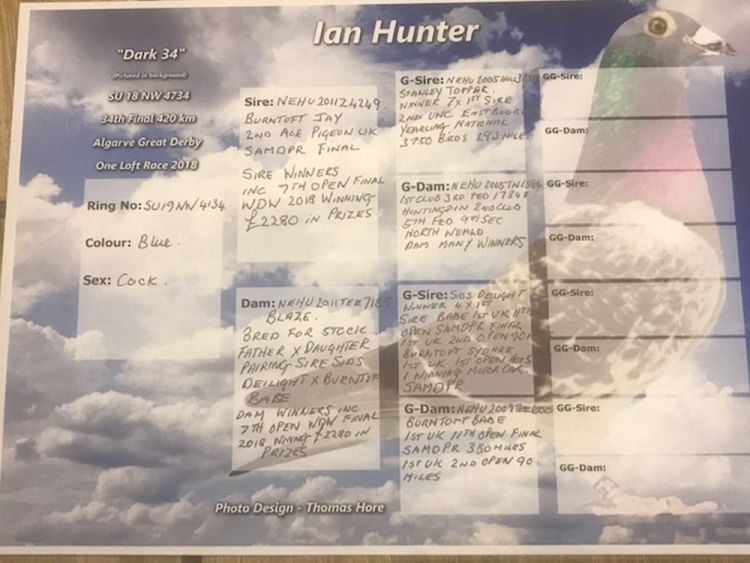 Ian Hunter
"Dark 34"
(Pictured in background)
SU 18 NW 4734
34th Final 420 km
Algarve Great Derby
One Loft Race 2018
Ring No: SU19NW 4134
Colour: Blue.
Sex: Cock.
Sire: NEHU2011Z4249.
BURNTOFT JAY
2ND ACE PIGEON UK
SAMDPR. FINAL
SIRE WINNERS
INC 7TH OPEN FINAL
WDW 2018 WINNING
£2280 IN PRIZES
Dam: NEHU2011TER7185
BLAZE.
BRED FOR STOCK
FATHER X DAUGHTER
PAIRING SIRE SIDS
DEILIGHT X BURNTOFT
BABE
DAM WINNERS INC
7TH OPEN WDW FINAL
2018 WINNG £2280 IN
PRIZES
G-Sire: NEHU 2005
STANLEY TOPPER.
WINNER 7X 1ST SIRE
2ND UNC EASTBOURN
YEARLING NATIONAL
3750 BIRDS 293 MILES
G-Dam: NEHU 2005
1ST CLUB 3RD FED 1734B
HUNTINGDIN 2ND CLUB
5TH FED 9TH SEC
NORTH WEALD
DAM MANY WINNERS
G-Sire: SIDS DELIGHT
WINNER 4 X 1ST
SIRE BABE 1ST UK 11TH
OPEN SAMDPR FINAL
1ST UK 2ND OPEN 90M
BURNTOFT SYDNEY
1ST UK 1ST OPEN HOTS
& WINNING MOTOR CAR.
SAMDPR
G-Dam: NEHU 2009
BURNTOFT BABE
1ST UK 11TH OPEN FINAL
SAMDPR 350 MILES
1ST UK 2ND OPEN 90
MILES
GG-Sire:
GG-Dam:
GG-Sire:
GG-Dam:
GG-Sire:
GG-Dam:
GG-Sire:
GG-Dam:
Photo Design - Thomas Hore